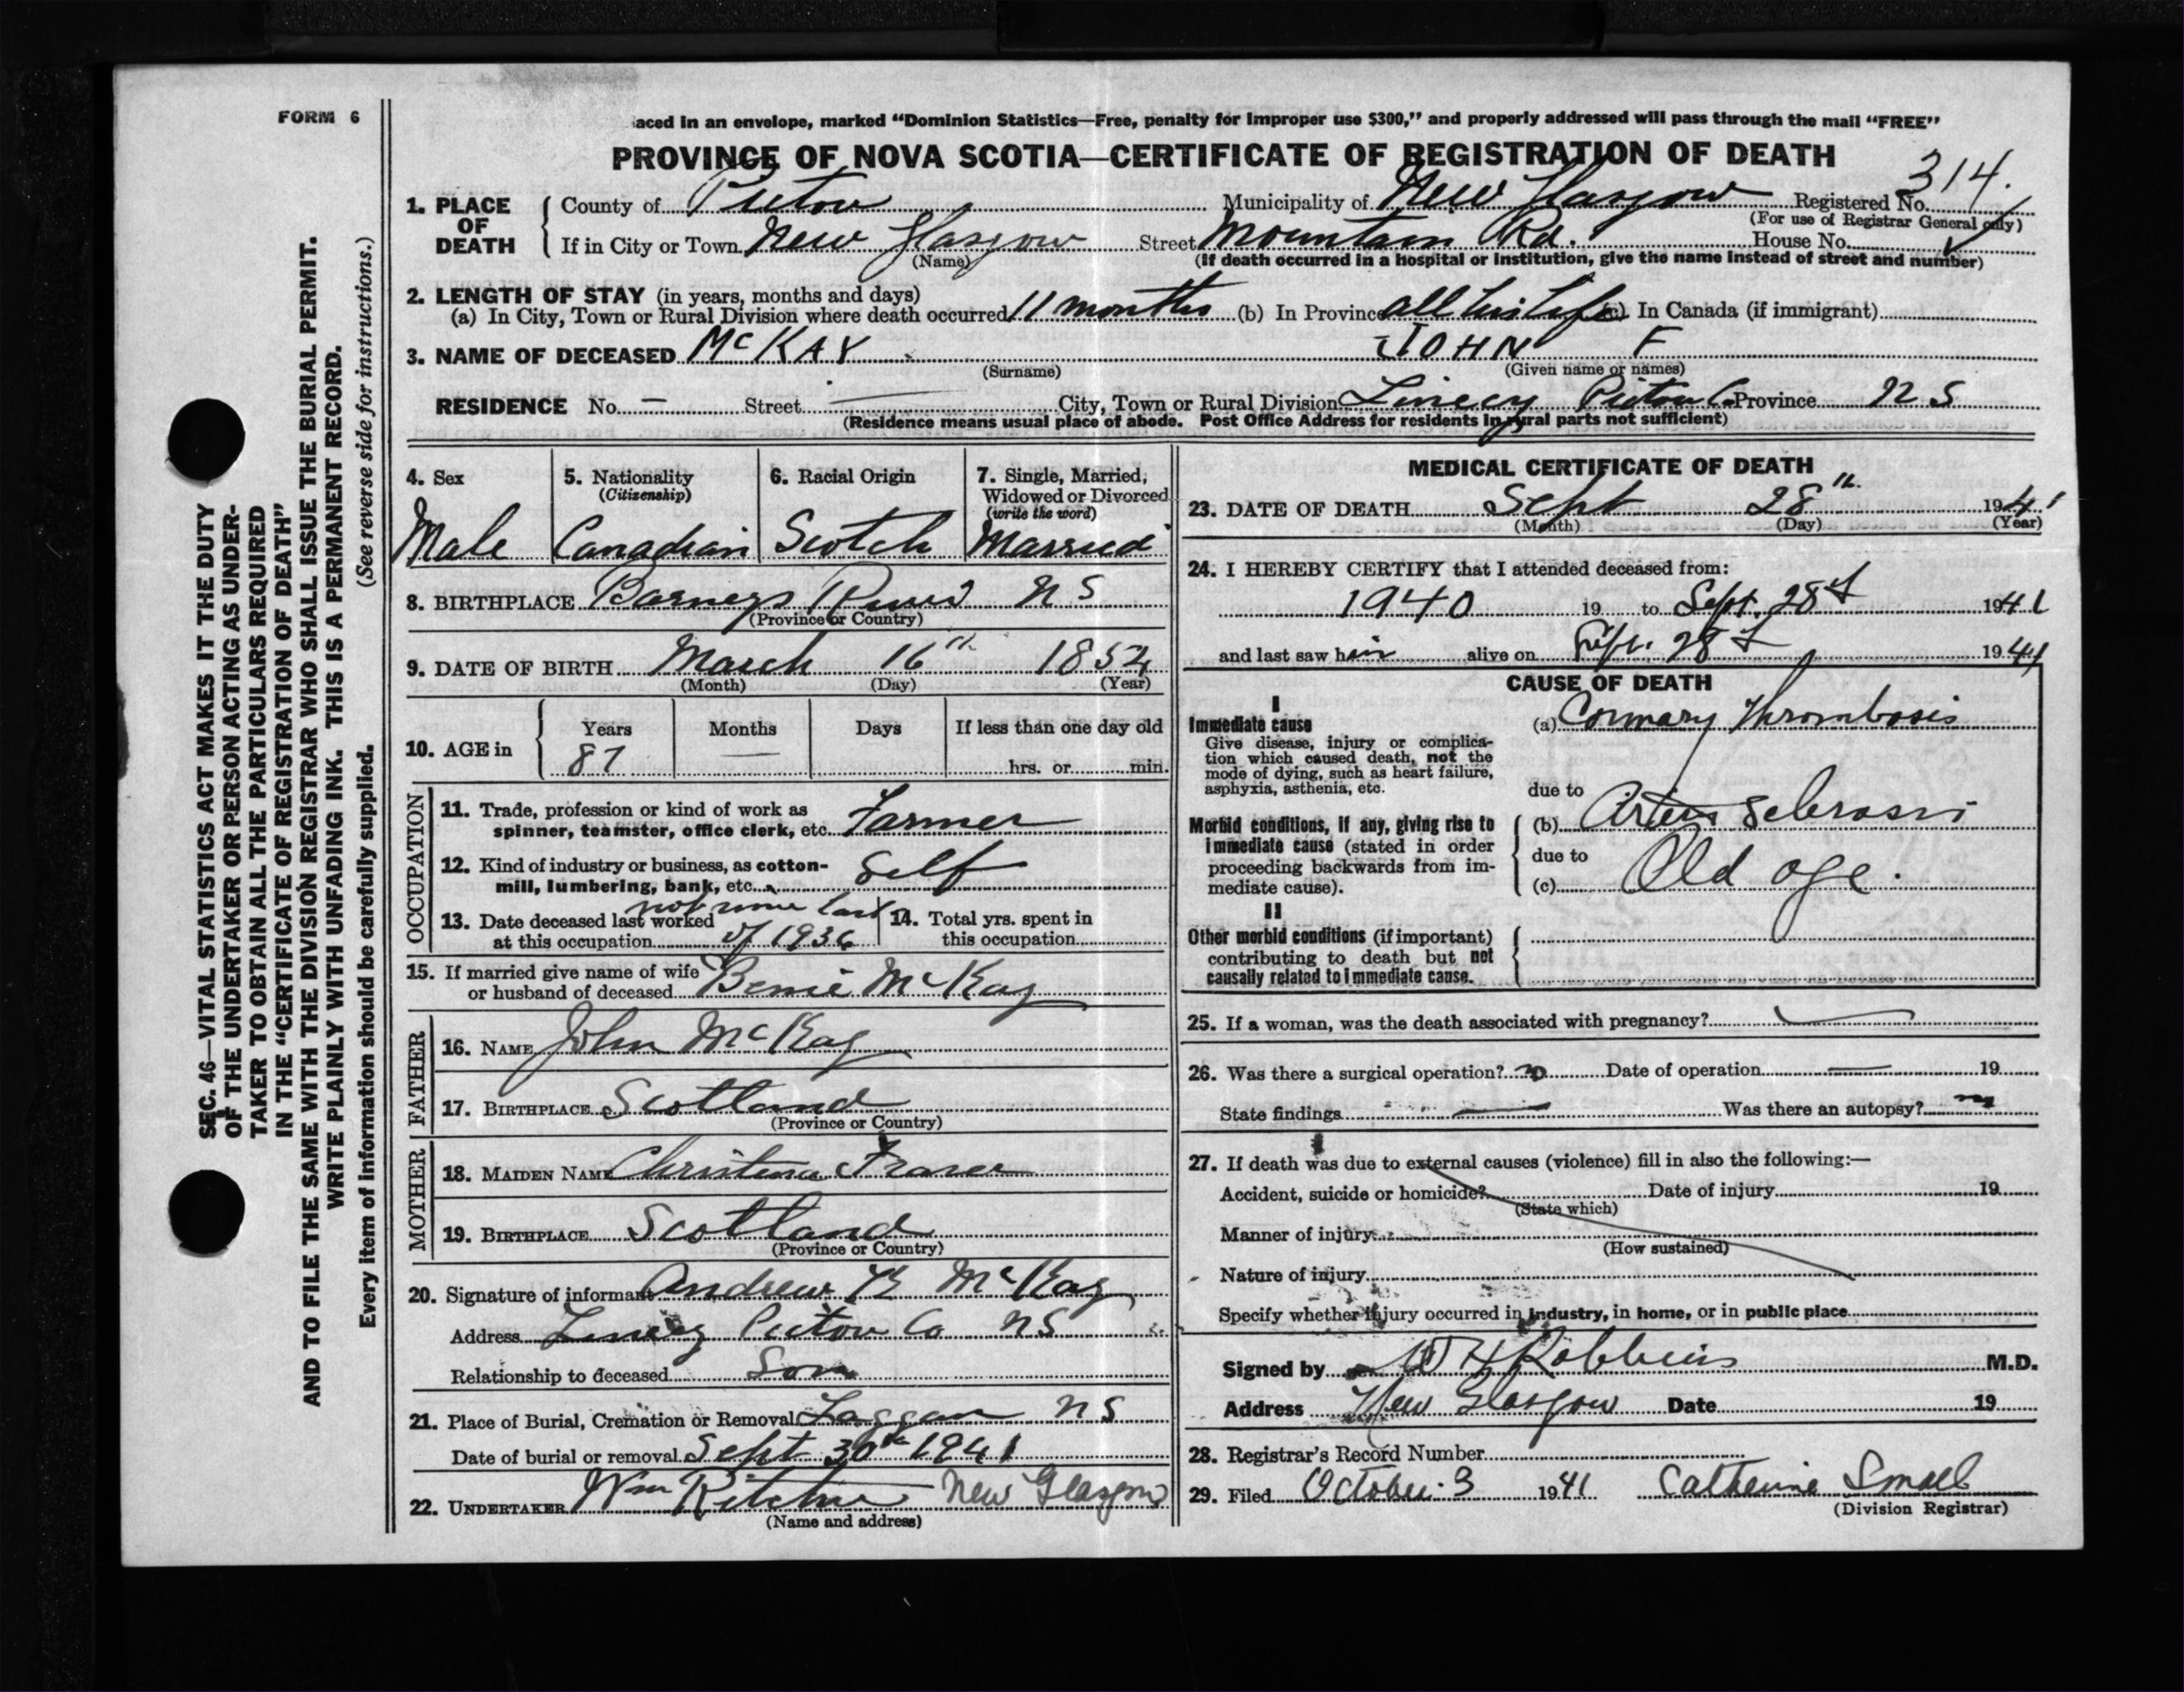 FORM 6
SEC. 46—VITAL STATISTICS ACT MAKES IT THE DUTY
OF THE UNDERTAKER OR PERSON ACTING AS UNDER-
TAKER TO OBTAIN ALL THE PARTICULARS REQUIRED
IN THE "CERTIFICATE OF REGISTRATION OF DEATH"
AND TO FILE THE SAME WITH THE DIVISION REGISTRAR WHO SHALL ISSUE THE BURIAL PERMIT.
WRITE PLAINLY WITH UNFADING INK. THIS IS A PERMANENT RECORD.
Every item of information should be carefully supplied. (See reverse side for instructions.)
aced in an envelope, marked "Dominion Statistics—Free, penalty for improper use $300," and properly addressed will pass through the mail "FREE"
PROVINCE OF NOVA SCOTIA—CERTIFICATE OF REGISTRATION OF DEATH
1. PLACE OF DEATH
County of Pictou Municipality of New Glasgow Registered No. 314.
(For use of Registrar General only)
If in City or Town New Glasgow Street Mountain Rd. House No.
(Name)
(If death occurred in a hospital or institution, give the name instead of street and number)
2. LENGTH OF STAY (in years, months and days)
(a) In City, Town or Rural Division where death occurred 11 months (b) In Province all his life (c) In Canada (if immigrant)
3. NAME OF DECEASED McKAY JOHN F
(Surname) (Given name or names)
RESIDENCE No. — Street — City, Town or Rural Division Pictou Co Province N S
(Residence means usual place of abode. Post Office Address for residents in rural parts not sufficient)
4. Sex
Male
5. Nationality
(Citizenship)
Canadian
6. Racial Origin
Scotch
7. Single, Married,
Widowed or Divorced
(write the word)
Married
8. BIRTHPLACE Barneys River N S
(Province or Country)
9. DATE OF BIRTH March 16th 1854
(Month) (Day) (Year)
10. AGE in
Years Months Days If less than one day old
87 — hrs. or min.
OCCUPATION
11. Trade, profession or kind of work as
spinner, teamster, office clerk, etc. Farmer
12. Kind of industry or business, as cotton-
mill, lumbering, bank, etc. Self
13. Date deceased last worked
at this occupation of 1936
14. Total yrs. spent in
this occupation
15. If married give name of wife
or husband of deceased McKay
FATHER
16. NAME John McKay
17. BIRTHPLACE Scotland
(Province or Country)
MOTHER
18. MAIDEN NAME Christena Fraser
19. BIRTHPLACE Scotland
(Province or Country)
20. Signature of informant Andrew McKay
Address Pictou Co N S
Relationship to deceased Son
21. Place of Burial, Cremation or Removal Laggan N S
Date of burial or removal Sept 30th 1941
22. UNDERTAKER Wm Ritchie New Glasgow
(Name and address)
MEDICAL CERTIFICATE OF DEATH
23. DATE OF DEATH Sept 28th 1941
(Month) (Day) (Year)
24. I HEREBY CERTIFY that I attended deceased from:
1940 19 to Sept. 28th 1941
and last saw him alive on Sept. 28th 1941
CAUSE OF DEATH
I
Immediate cause
Give disease, injury or complica-
tion which caused death, not the
mode of dying, such as heart failure,
asphyxia, asthenia, etc.
(a) Coronary Thrombosis
due to
Morbid conditions, if any, giving rise to
immediate cause (stated in order
proceeding backwards from im-
mediate cause).
(b) Arterio Sclerosis
due to
(c) Old age.
II
Other morbid conditions (if important)
contributing to death but not
causally related to immediate cause.
25. If a woman, was the death associated with pregnancy?
26. Was there a surgical operation? no Date of operation — 19
State findings — Was there an autopsy? no
27. If death was due to external causes (violence) fill in also the following:—
Accident, suicide or homicide? Date of injury 19
(State which)
Manner of injury
(How sustained)
Nature of injury
Specify whether injury occurred in industry, in home, or in public place
Signed by Robbins M.D.
Address New Glasgow Date 19
28. Registrar's Record Number
29. Filed October 3 1941 Catherine Small
(Division Registrar)